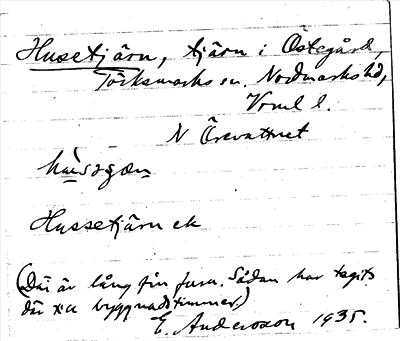 Husetjärn, tjärn i Östegård,
Töcksmarks sn. Nordmarks hd,
Vrml l.
N Örevattnet
Hussetjärn ek
(Där är lång fin furu. Sådan har tagits
där t.ex byggnadstimmer.)
E. Andersson 1935.